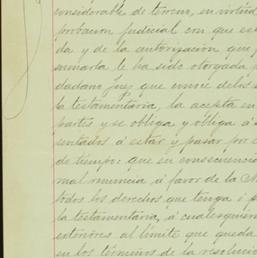 considerable de tercero, en virtud
probacion judicial con que est
da y de la autorizacion que p
sumarla le ha sido otorgada
dadano Juez que conoce de los
la testamentária, la acepta en
partes y se obliga y obliga á
sentados á estar y pasar por e
de tiempo: que en consecuencia
mal renuncia á favor de la N
todos los derechos que tenga i p
la testamentária, á cualesquier
exteriores al límite que queda
en los términos de la resolucio